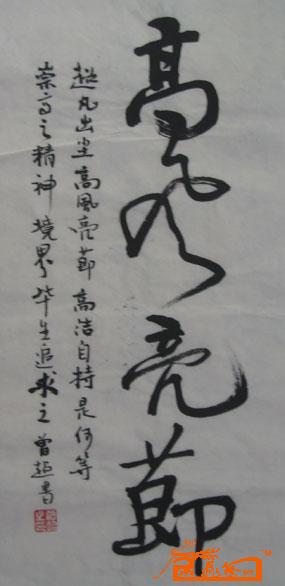 高风亮節
超凡出尘高風亮節高洁自持是何等
崇高之精神境界毕生追求之曾超書